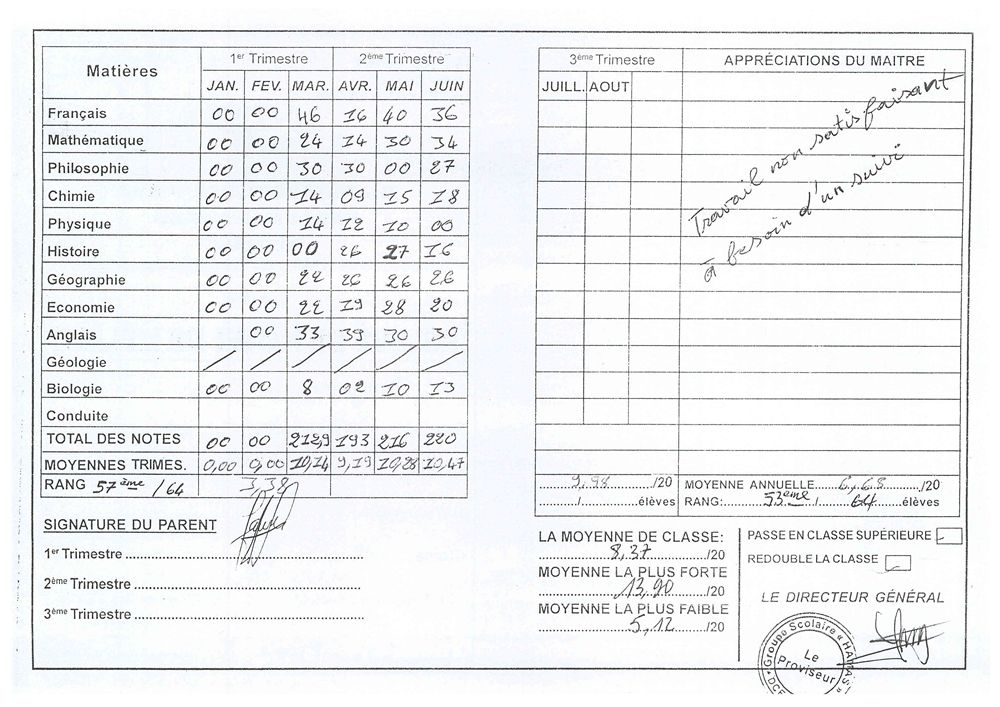 Matières 1er Trimestre 2ème Trimestre
JAN. FEV. MAR. AVR. MAI JUIN
Français 00 00 46 16 40 36
Mathématique 00 00 24 14 30 34
Philosophie 00 00 30 30 00 27
Chimie 00 00 14 09 15 18
Physique 00 00 14 12 10 00
Histoire 00 00 00 26 27 16
Géographie 00 00 22 26 26 26
Economie 00 00 22 19 28 20
Anglais 00 33 39 30 30
Géologie / / / / / /
Biologie 00 00 8 02 10 13
Conduite
TOTAL DES NOTES 00 00 212,9 193 216 220
MOYENNES TRIMES. 0,00 0,00 10,14 9,19 10,28 10,47
RANG 57ème /64 3,38
SIGNATURE DU PARENT
1er Trimestre
2ème Trimestre
3ème Trimestre
3ème Trimestre APPRÉCIATIONS DU MAITRE
JUILL. AOUT
Travail non satisfaisant
à besoin d'un suivi
9,98 /20 MOYENNE ANNUELLE 6,68 /20
/ élèves RANG: 53ème / 64 élèves
LA MOYENNE DE CLASSE:
8,37 /20
MOYENNE LA PLUS FORTE
13,90 /20
MOYENNE LA PLUS FAIBLE
5,12 /20
PASSE EN CLASSE SUPÉRIEURE
REDOUBLE LA CLASSE
LE DIRECTEUR GÉNÉRAL
Groupe Scolaire
Le
Proviseur